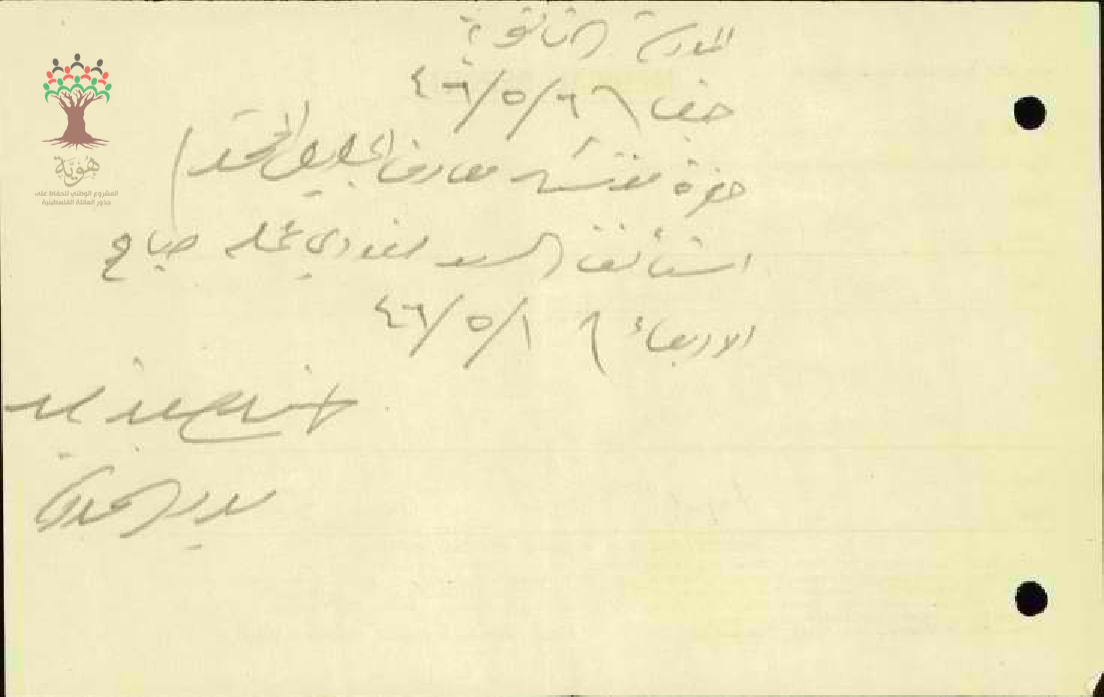 المدرسة الثانوية
حيفا ٤٦/٥/٦
حضرة مفتش معارف الجليل المحترم
استأنف السيد عمله صباح
الاربعاء ٤٦/٥/١
مدير المدرسة
هُوِيَّة
المشروع الوطني للحفاظ على
جذور العائلة الفلسطينية